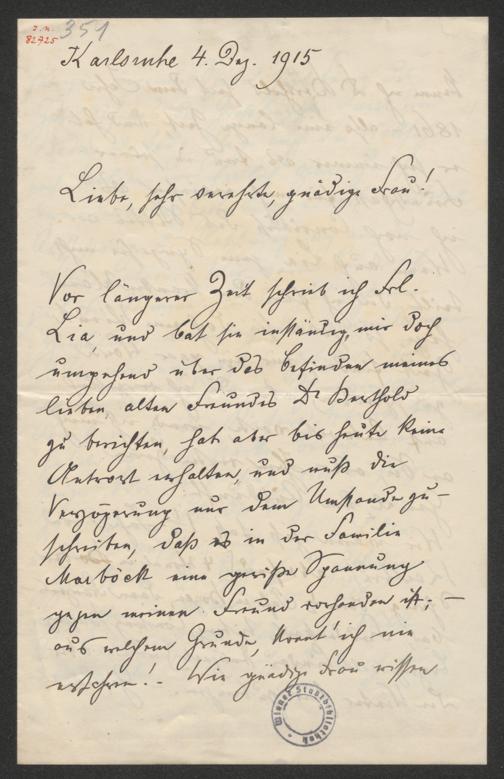 I.N.
82925
351
Karlsruhe 4. Dez. 1915
Liebe, sehr verehrte, gnädige Frau!
Vor längerer Zeit schrieb ich Frl.
Lia, und bat sie inständig, mir doch
umgehend über das Befinden meines
lieben, alten Freundes Dr Berthold
zu berichten, hab aber bis heute keine
Antwort erhalten, und muß die
Verzögerung nur dem Umstande zu-
schreiben, daß es in der Familie
Marböck eine gewisse Spannung
gegen meinen Freund vorhanden ist; —
aus welchem Grunde, konnt' ich nie
erfahren! – Wie gnädige Frau wissen
Wiener Stadtbibliothek